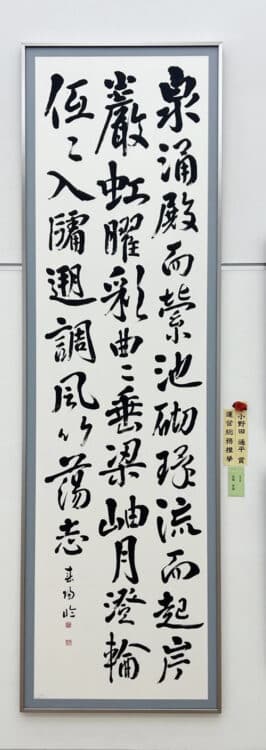 泉涌殿而縈池砌環流而起岸
巖虹曜彩曲〻垂梁岫月澄輪
低〻入牖遡調風以蕩志
春陽臨
小野田 通平 賞
運営総務推挙